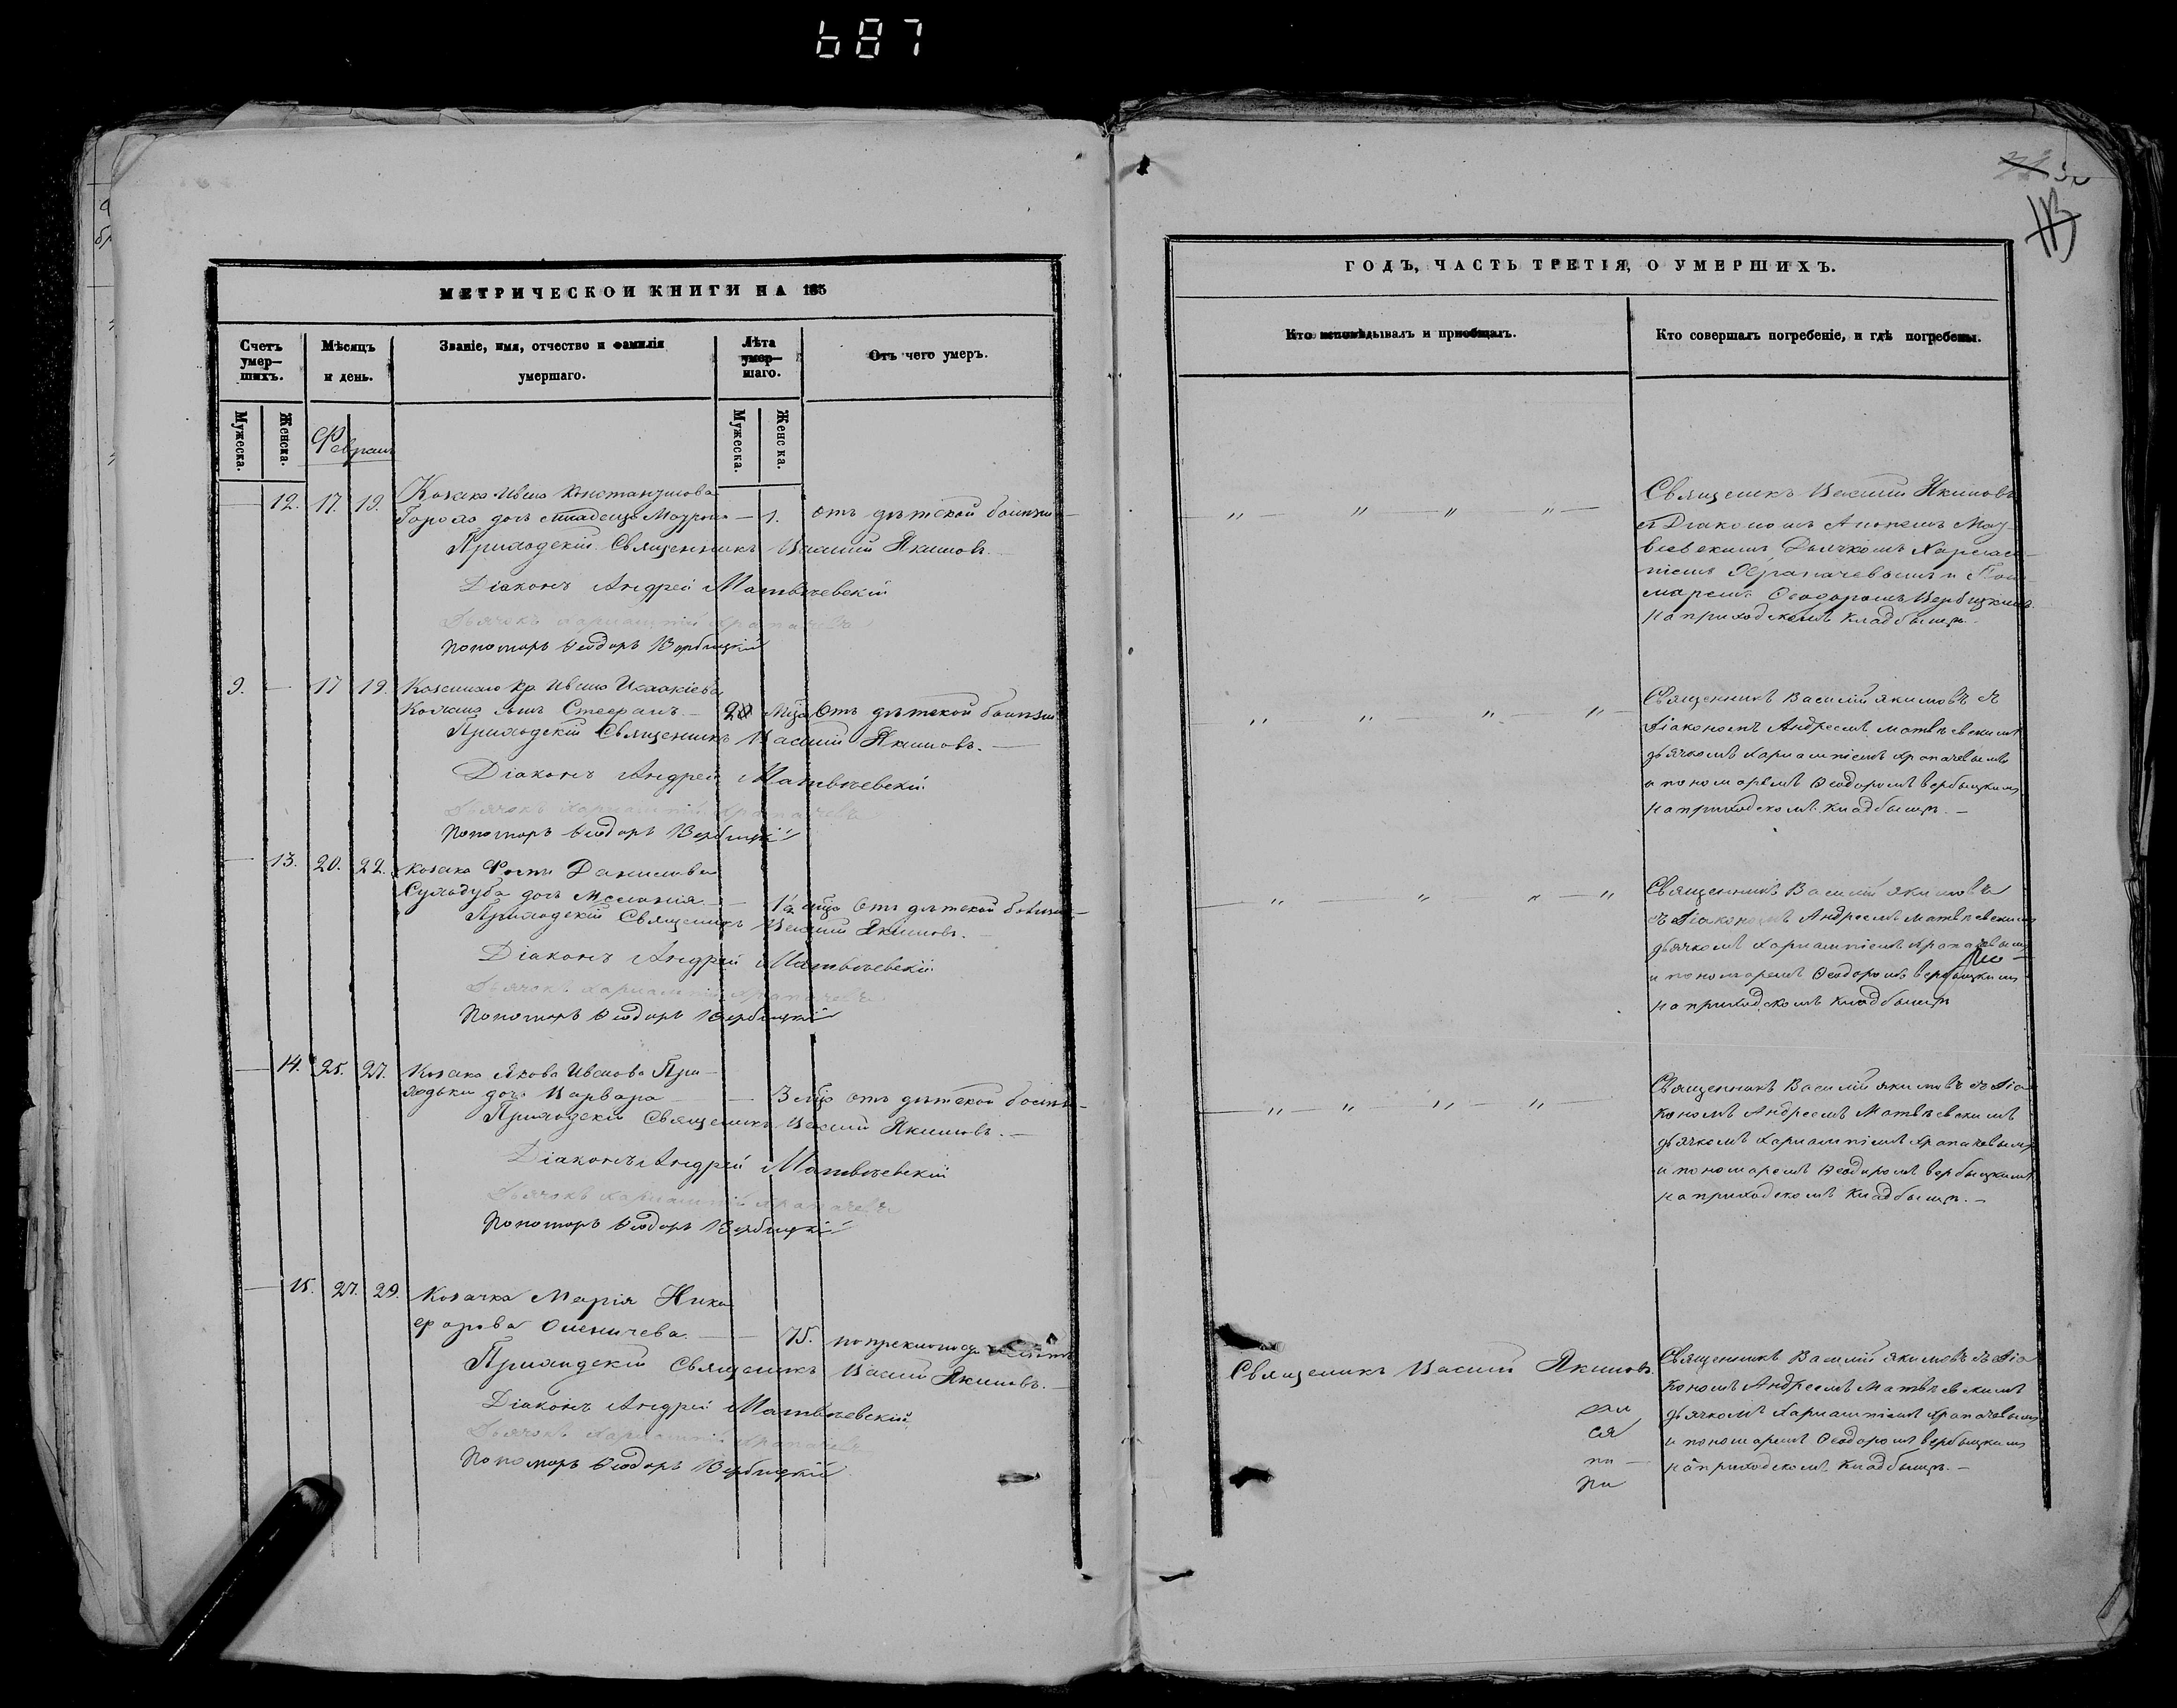 687
113
МЕТРИЧЕСКОЙ КНИГИ НА 185
Счетъ умер–шихъ.
Мѣсяцъ и день.
Званіе, имя, отчество и фамилія умершаго.
Лѣта умер–шаго.
Отъ чего умеръ.
Мужеска.
Женска.
Февраль
Мужеска.
Женска.
12. 17. 19. Козака Ивана Константинова
дочь младенца 1. отъ дѣтской болѣзни
Приходскій Священникъ Василій Якимовъ.
Діаконъ Андрей Матвѣевскій
Дьячокъ Харлампій Храпачевъ
Пономарь Ѳеодоръ Вербицкій
9. 17 19. Ивана
сынъ Стефанъ. 2 м-ца Отъ дѣтской болѣзни
Приходскій Священникъ Василій Якимовъ.
Діаконъ Андрей Матвѣевскій
Дьячокъ Харлампій Храпачевъ
Пономарь Ѳеодоръ Вербицкій
13. 20. 22. Козака Данилова
дочь 1½ м-ца Отъ дѣтской болѣзни
Приходскій Священникъ Василій Якимовъ.
Діаконъ Андрей Матвѣевскій
Дьячокъ Харлампій Храпачевъ
Пономарь Ѳеодоръ Вербицкій
14. 25. 27. Козака Якова Иванова При–
ходьки дочь Варвара 3 м-ца отъ дѣтской болѣзни
Приходскій Священникъ Василій Якимовъ.
Діаконъ Андрей Матвѣевскій
Дьячокъ Харлампій Храпачевъ
Пономарь Ѳеодоръ Вербицкій
15. 27. 29. Козачка Марія Ники
форова Оленичева. 75.
Приходскій Священникъ Василій Якимовъ.
Діаконъ Андрей Матвѣевскій
Дьячокъ Харлампій Храпачевъ
Пономарь Ѳеодоръ Вербицкій
ГОДЪ, ЧАСТЬ ТРЕТІЯ, О УМЕРШИХЪ.
Кто исповѣдывалъ и приобщалъ.
Кто совершалъ погребеніе, и гдѣ погребены.
Священникъ Василій Якимовъ
съ Діакономъ Мат
вѣевскимъ Дьячкомъ Харлам
піемъ Храпачевымъ и Поно
маремъ Ѳеодоромъ Вербицкимъ
на приходскомъ кладбищѣ.
Священникъ Василій Якимовъ съ
Діакономъ Андреемъ Матвѣевскимъ
дьячкомъ Харлампіемъ Храпачевымъ
и пономаремъ Ѳеодоромъ Вербицкимъ
на приходскомъ кладбищѣ. –
Священникъ Василій Якимовъ
съ Діакономъ Андреемъ Матвѣевскимъ
дьячкомъ Харлампіемъ Храпачевымъ
и пономаремъ Ѳеодоромъ Вербицкимъ
на приходскомъ кладбищѣ
Священникъ Василій Якимовъ съ Діа
кономъ Андреемъ Матвѣевскимъ
дьячкомъ Харлампіемъ Храпачевымъ
и пономаремъ Ѳеодоромъ Вербицкимъ
на приходскомъ кладбищѣ. –
Священникъ Василій Якимовъ.
Священникъ Василій Якимовъ съ Діа
кономъ Андреемъ Матвѣевскимъ
дьячкомъ Харлампіемъ Храпачевымъ
и пономаремъ Ѳеодоромъ Вербицкимъ
на приходскомъ кладбищѣ. –